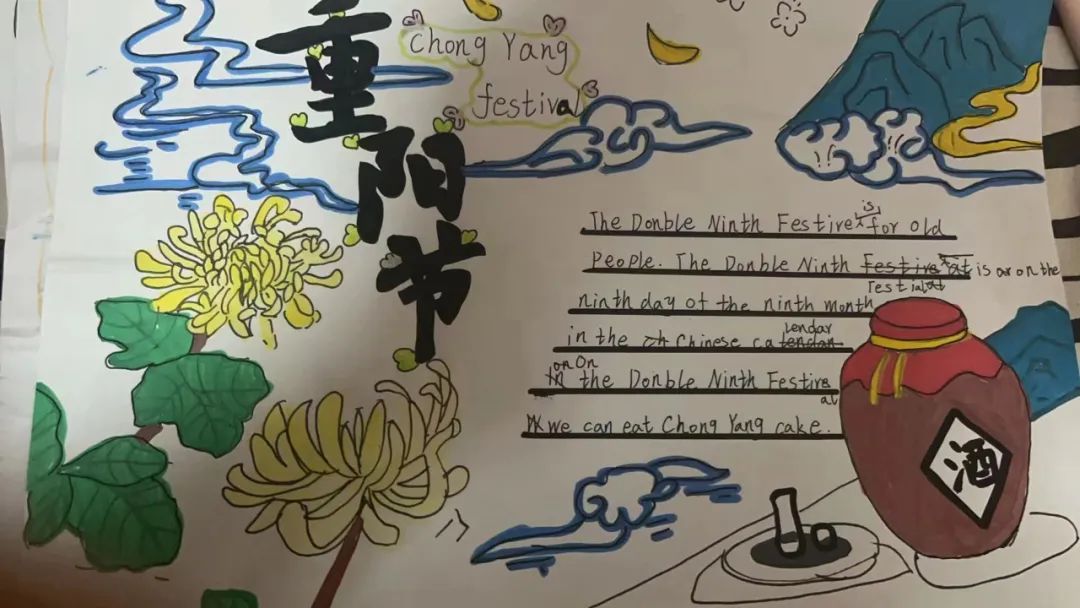 重阳节
Chong Yang
festival
The Donble Ninth Festive is for old
People. The Donble Ninth Festive at is ar on the
Festial at
ninth day of the ninth month
in the Chinese ca lendar
On the Donble Ninth Festiva
al
we can eat Chong Yang cake.
酒